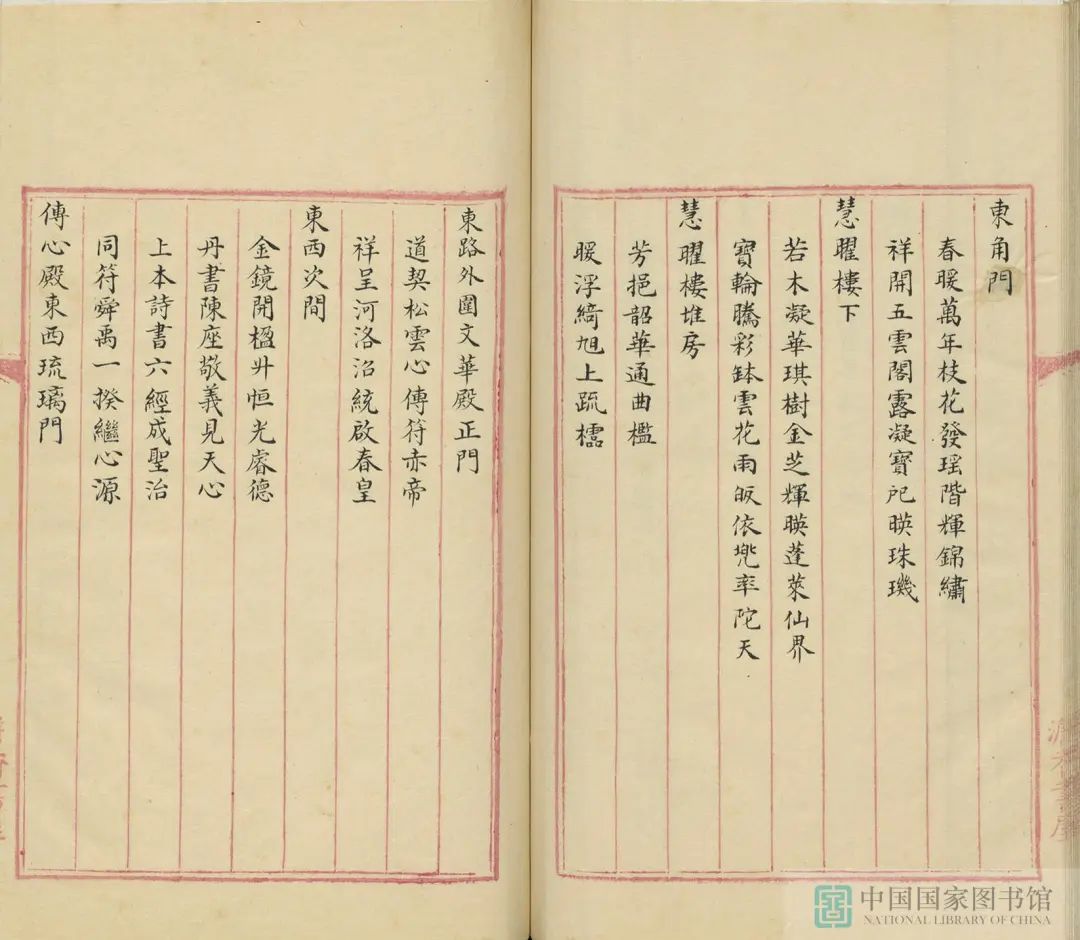 東角門
春暖萬年枝花發瑶階輝錦繡
祥開五雲閣露凝寶戺暎珠璣
慧曜樓下
若木凝華琪樹金芝輝暎蓬萊仙界
寶輪騰彩鉢雲花雨皈依兠率陀天
慧曜樓堆房
芳挹韶華通曲檻
暖浮綺旭上疏櫺
東路外圍文華殿正門
道契松雲心傳符赤帝
祥呈河洛治統啟春皇
東西次間
金鏡開楹升恒光睿德
丹書陳座敬義見天心
上本詩書六經成聖治
同符舜禹一揆繼心源
傳心殿東西琉璃門
中国国家图书馆
NATIONAL LIBRARY OF CHINA